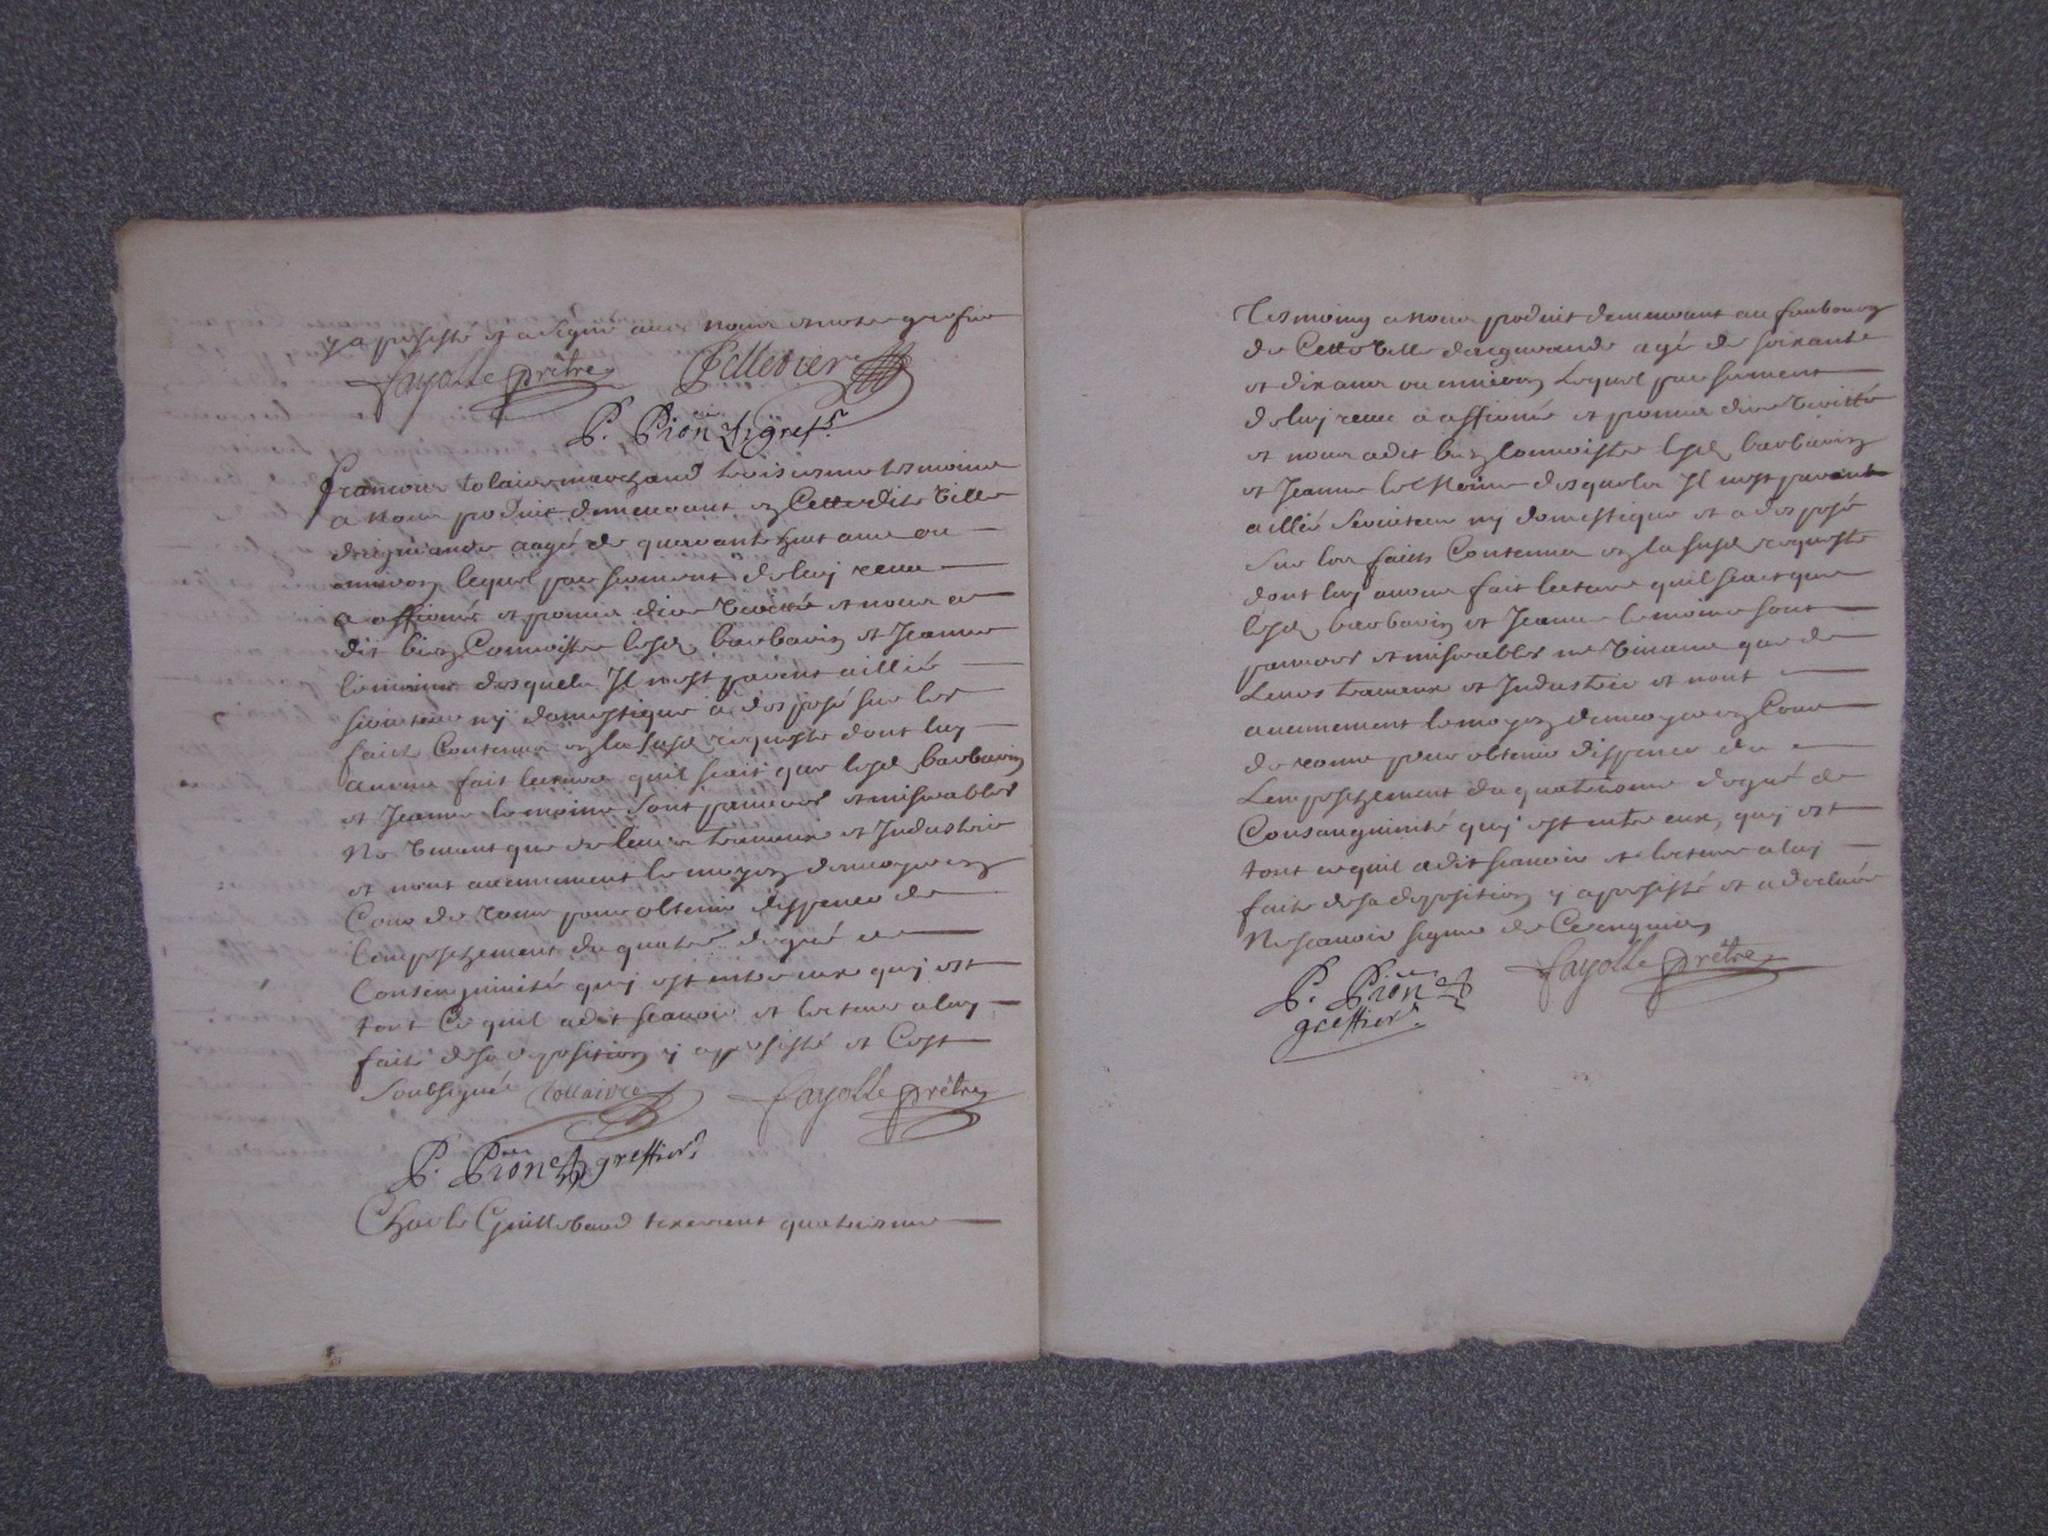 y a persisté et a signé avec nous et notre greffier
fayolle prêtre Pelletier
P. Pion greff.r
francois tolaire marchand troisiesme tesmoing
a nous produit demeurant en Cette dite ville
daigurande aagé de quarante huit ans ou
environ lequel par serment de luy receu
a affirmé et promis dire veritté et nous a
dit bien Connoistre lesd barbarin et Jeanne
lemoine desquels Il nest parent aillié
serviteur ny domestique a desposé sur les
faits Contenus en la susd requeste dont luy
avons fait lecture quil scait que lesd barbarin
et Jeanne lemoine sont pauvres et miserables
Ne vivent que de leurs travaux et Industrie
et nont aucunement le moyen denvoyer en
Cour de rome pour obtenir dispence de
lempeschement du quatre degré de
Consanguinité quy est entre eux quy est
tout Ce quil a dit scavoir et lecture a luy
faite de sa deposition y a persisté et Cest
soubsigné tollaire fayolle prêtre
P. Pion greffier
Charle Guillebaud texerent quatriesme
Tesmoing a nous produit demeurant au faubourg
de Cette ville daigurande agé de soixante
et dix ans ou environ Lequel par serment
de luy receu a affirmé et promis dire veritté
et nous a dit bien Connoistre lesd barbarin
et Jeanne le Moine desquels Il nest parent
aillié serviteur ny domestique et a desposé
sur les faits Contenus en la susd requeste
dont luy avons fait lecture quil scait que
lesd barbarin et Jeanne lemoine sont
pauvres et miserables ne vivans que de
Leurs travaux et Industrie et nont
aucunement le moyen denvoyer en Cour
de rome pour obtenir dispence du
Lempeschement du quatriesme degré de
Consanguinité quy est entre eux, quy est
tout ce quil a dit scavoir et lecture a luy
faite de sa deposition y a persisté et a declaré
Ne scavoir signer de Ce enquis
P. Pion fayolle prêtre
greffier